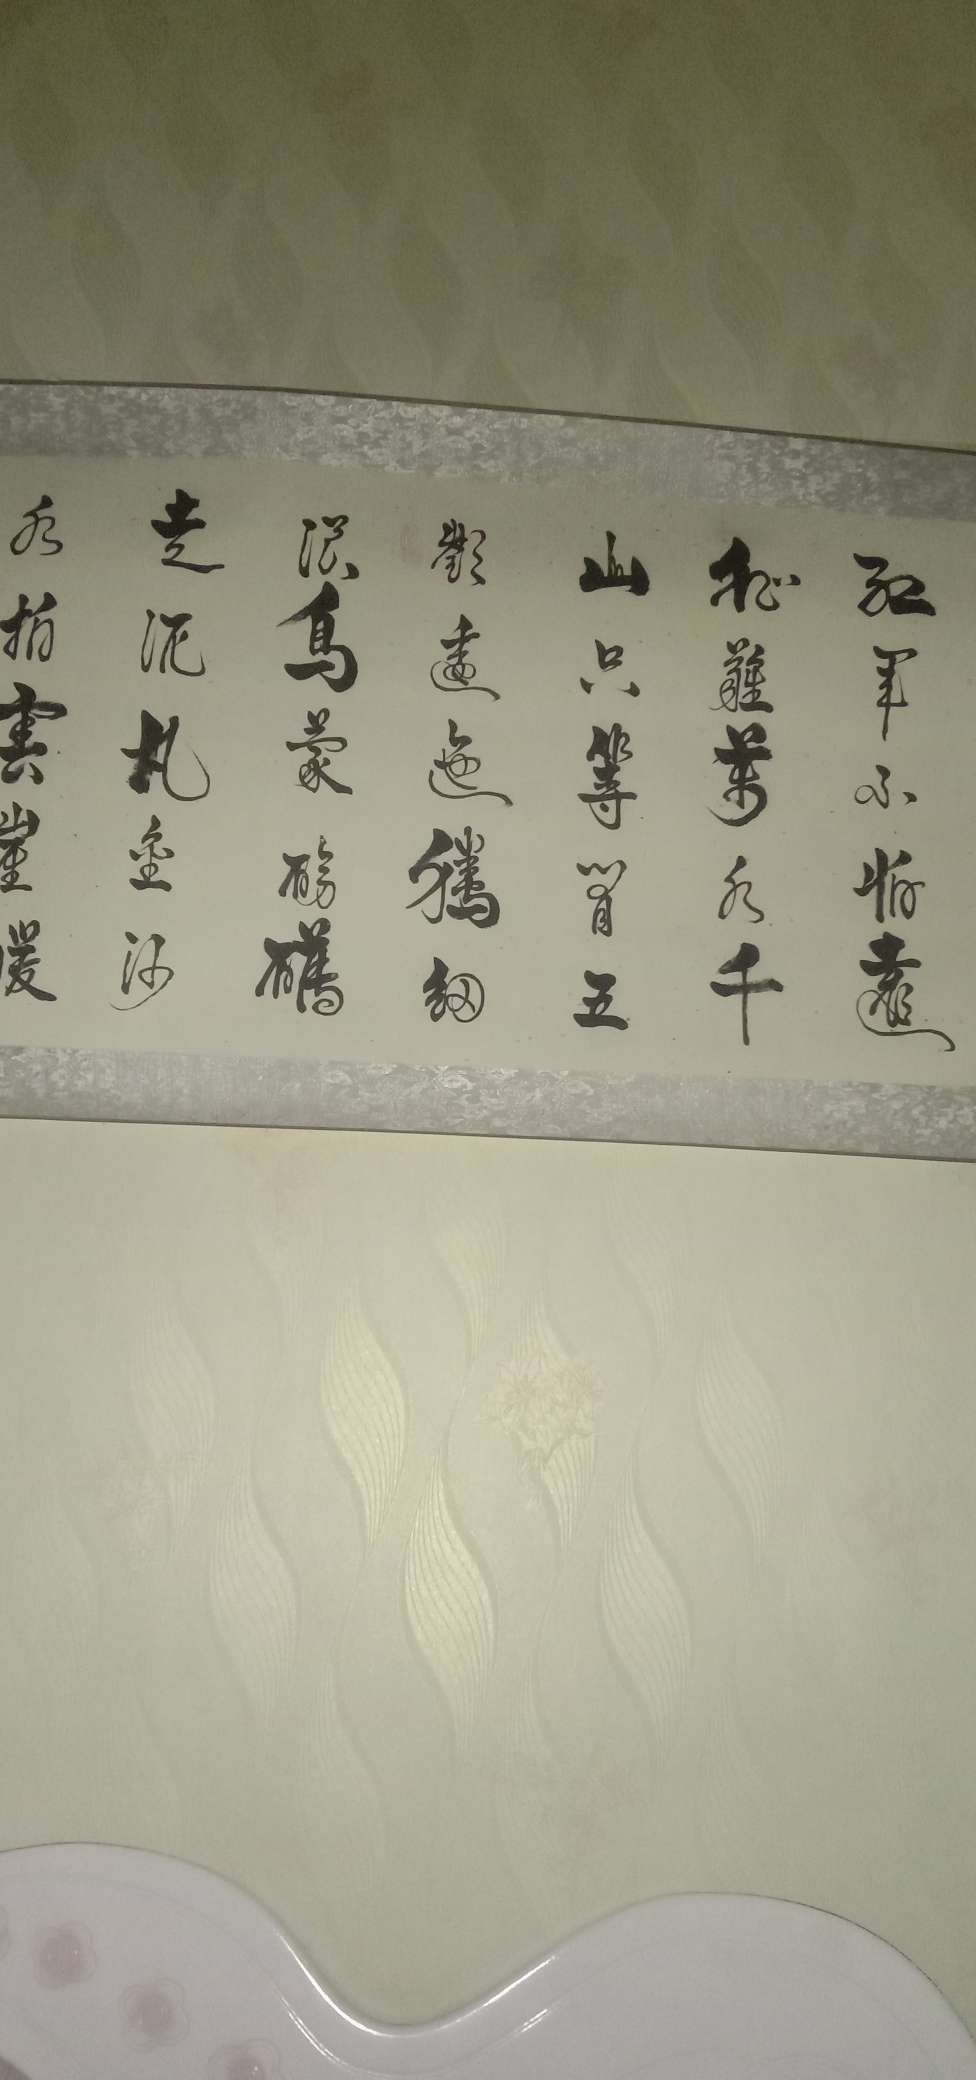 紅軍不怕遠
征難萬水千
山只等閒五
嶺逶迤騰細
浪烏蒙磅礴
走泥丸金沙
水拍雲崖暖